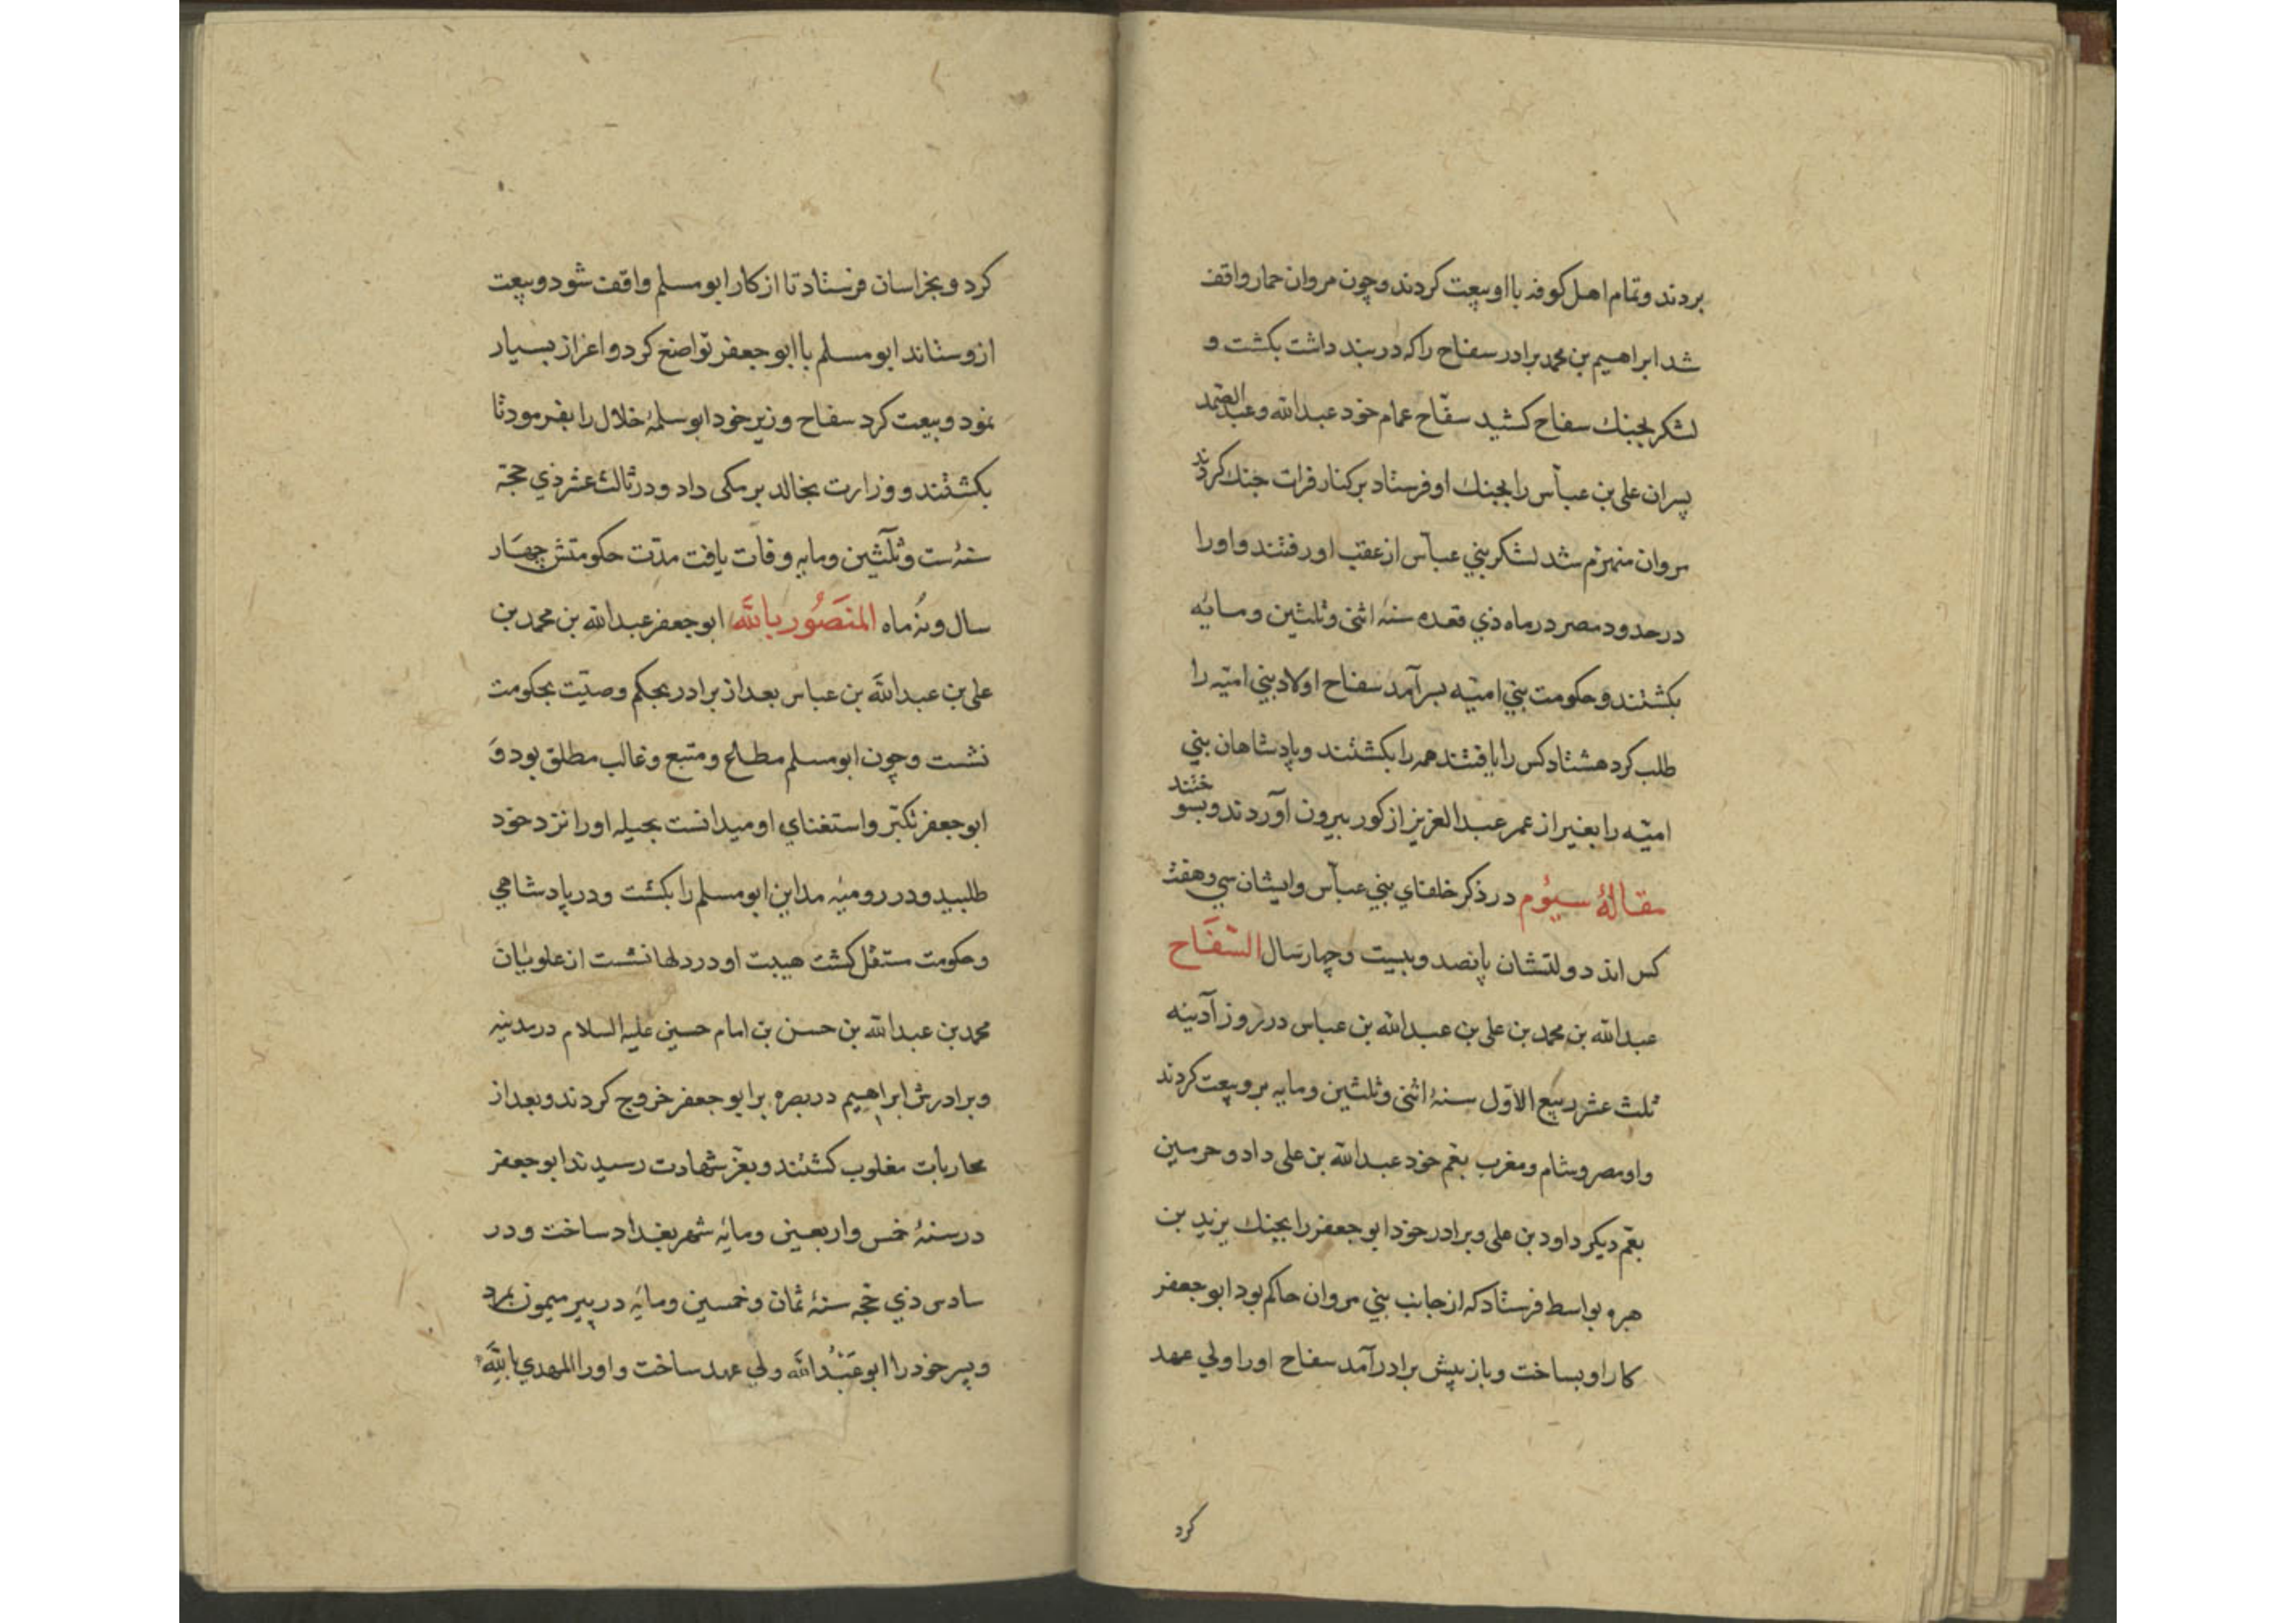 بردند و تمام اهل کوفه با او بیعت کردند و چون مروان حمار واقف
شد ابراهیم بن محمد برادر سفاح را که در بند داشت بکشت و
لشکر بجنك سفاح کشید سفّاح عمام خود عبدالله و عبدالصّمد
پسران علی بن عبّاس را بجنك او فرستاد بر کنار فرات جنك کردند
مروان منهزم شد لشکر بني عبّاس از عقب او رفتند و او را
در حدود مصر در ماه ذي قعده سنهٔ اثنی و ثلثین و مایٔه
بکشتند و حکومت بني امیّه بسر آمد سفاح اولاد بني امیّه را
طلب کرد هشتاد کس را یافتند همه را بکشتند و پادشاهان بني
امیّه را بغیر از عمر عبدالعزیز از کور بیرون آوردند و بسوختند
مقالهٔ سیوم در ذکر خلفاي بني عبّاس و ایشان سي و هفت
کس اند دولتشان پانصد و بیست و چهار سال السّفّاح
عبدالله بن محمد بن علی بن عبدالله بن عباس در روز آدینه
ثلث عشر ربیع الاوّل سنهٔ اثنی و ثلثین و مایه برو بیعت کردند
و او مصر و شام و مغرب بعّم خود عبدالله بن علی داد و حرمین
بعّم دیکر داود بن علی و برادر خود ابو جعفر را بجنك یزید بن
هبره بواسط فرستاد که از جانب بني مروان حاکم بود ابو جعفر
کار او بساخت و باز پیش برادر آمد سفاح او را ولي عهد
کرد
کرد و بخراسان فرستاد تا از کار ابو مسلم واقف شود و بیعت
ازو ستاند ابو مسلم با ابو جعفر تواضع کرد و اعزاز بسیار
نمود و بیعت کرد سفاح وزیر خود ابو سلمهٔ خلال را بفرمود تا
بکشتند و وزارت بخالد برمکی داد و در ثالث عشر ذي حجّة
سنهٔ ست و ثلثین و مایه وفات یافت مدّت حکومتش چهار
سال و نُه ماه المنصور بالله ابو جعفر عبدالله بن محمد بن
علی بن عبدالله بن عباس بعد از برادر بحکم وصیّت بحکومت
نشست و چون ابو مسلم مطاع و متبع و غالب مطلق بود و
ابو جعفر تکبّر و استغناي او میدانست بحیله او را نزد خود
طلبید و در رومیهٔ مداین ابو مسلم را بکشت و در پادشاهي
و حکومت مستقل کشت هیبت او در دلها نشست از علویان
محمد بن عبدالله بن حسن بن امام حسین علیه السلام در مدینه
و برادرش ابراهیم در بصره بر ابو جعفر خروج کردند و بعد از
محاربات مغلوب کشتند و بعّز شهادت رسیدند ابو جعفر
در سنهٔ خمس و اربعین و مایٔه شهر بغداد ساخت و در
سادس ذي حجّه سنهٔ ثمان و خمسین و مایٔه در بیر میمون بمرد
و پسر خود را ابو عبدالله ولي عهد ساخت و او را المهدي بالله